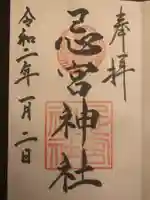 奉拝
忌宮神社
令和二年一月二日